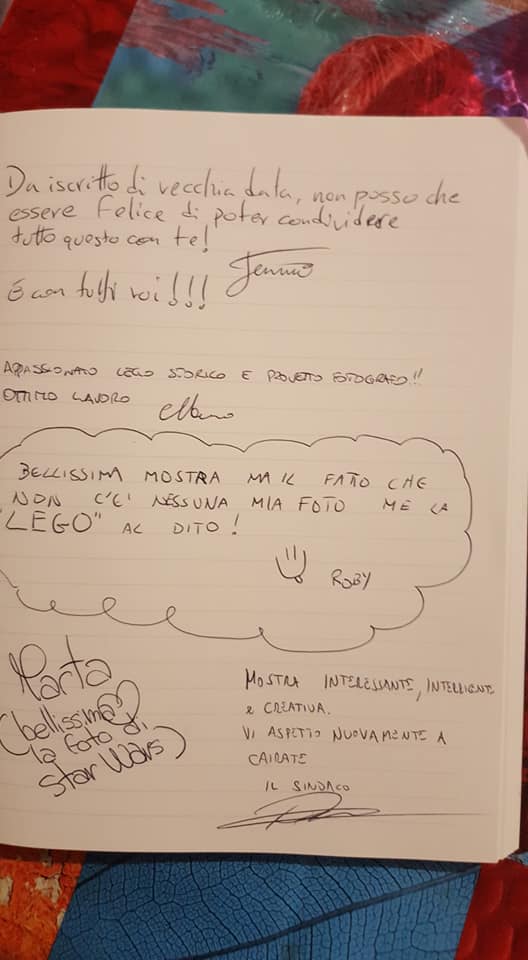 Da iscritto di vecchia data, non posso che
essere felice di poter condividere
tutto questo con te!
E con tutti voi!!!
APPASSIONATO LEGO STORICO E PROVETTO FOTOGRAFO!!
OTTIMO LAVORO
BELLISSIMA MOSTRA MA IL FATTO CHE
NON C'E' NESSUNA MIA FOTO ME LA
"LEGO" AL DITO!
ROBY
Marta
(bellissima
la foto di
Star Wars)
MOSTRA INTERESSANTE, INTELLIGENTE
e CREATIVA.
VI ASPETTO NUOVAMENTE A
CAIRATE
IL SINDACO